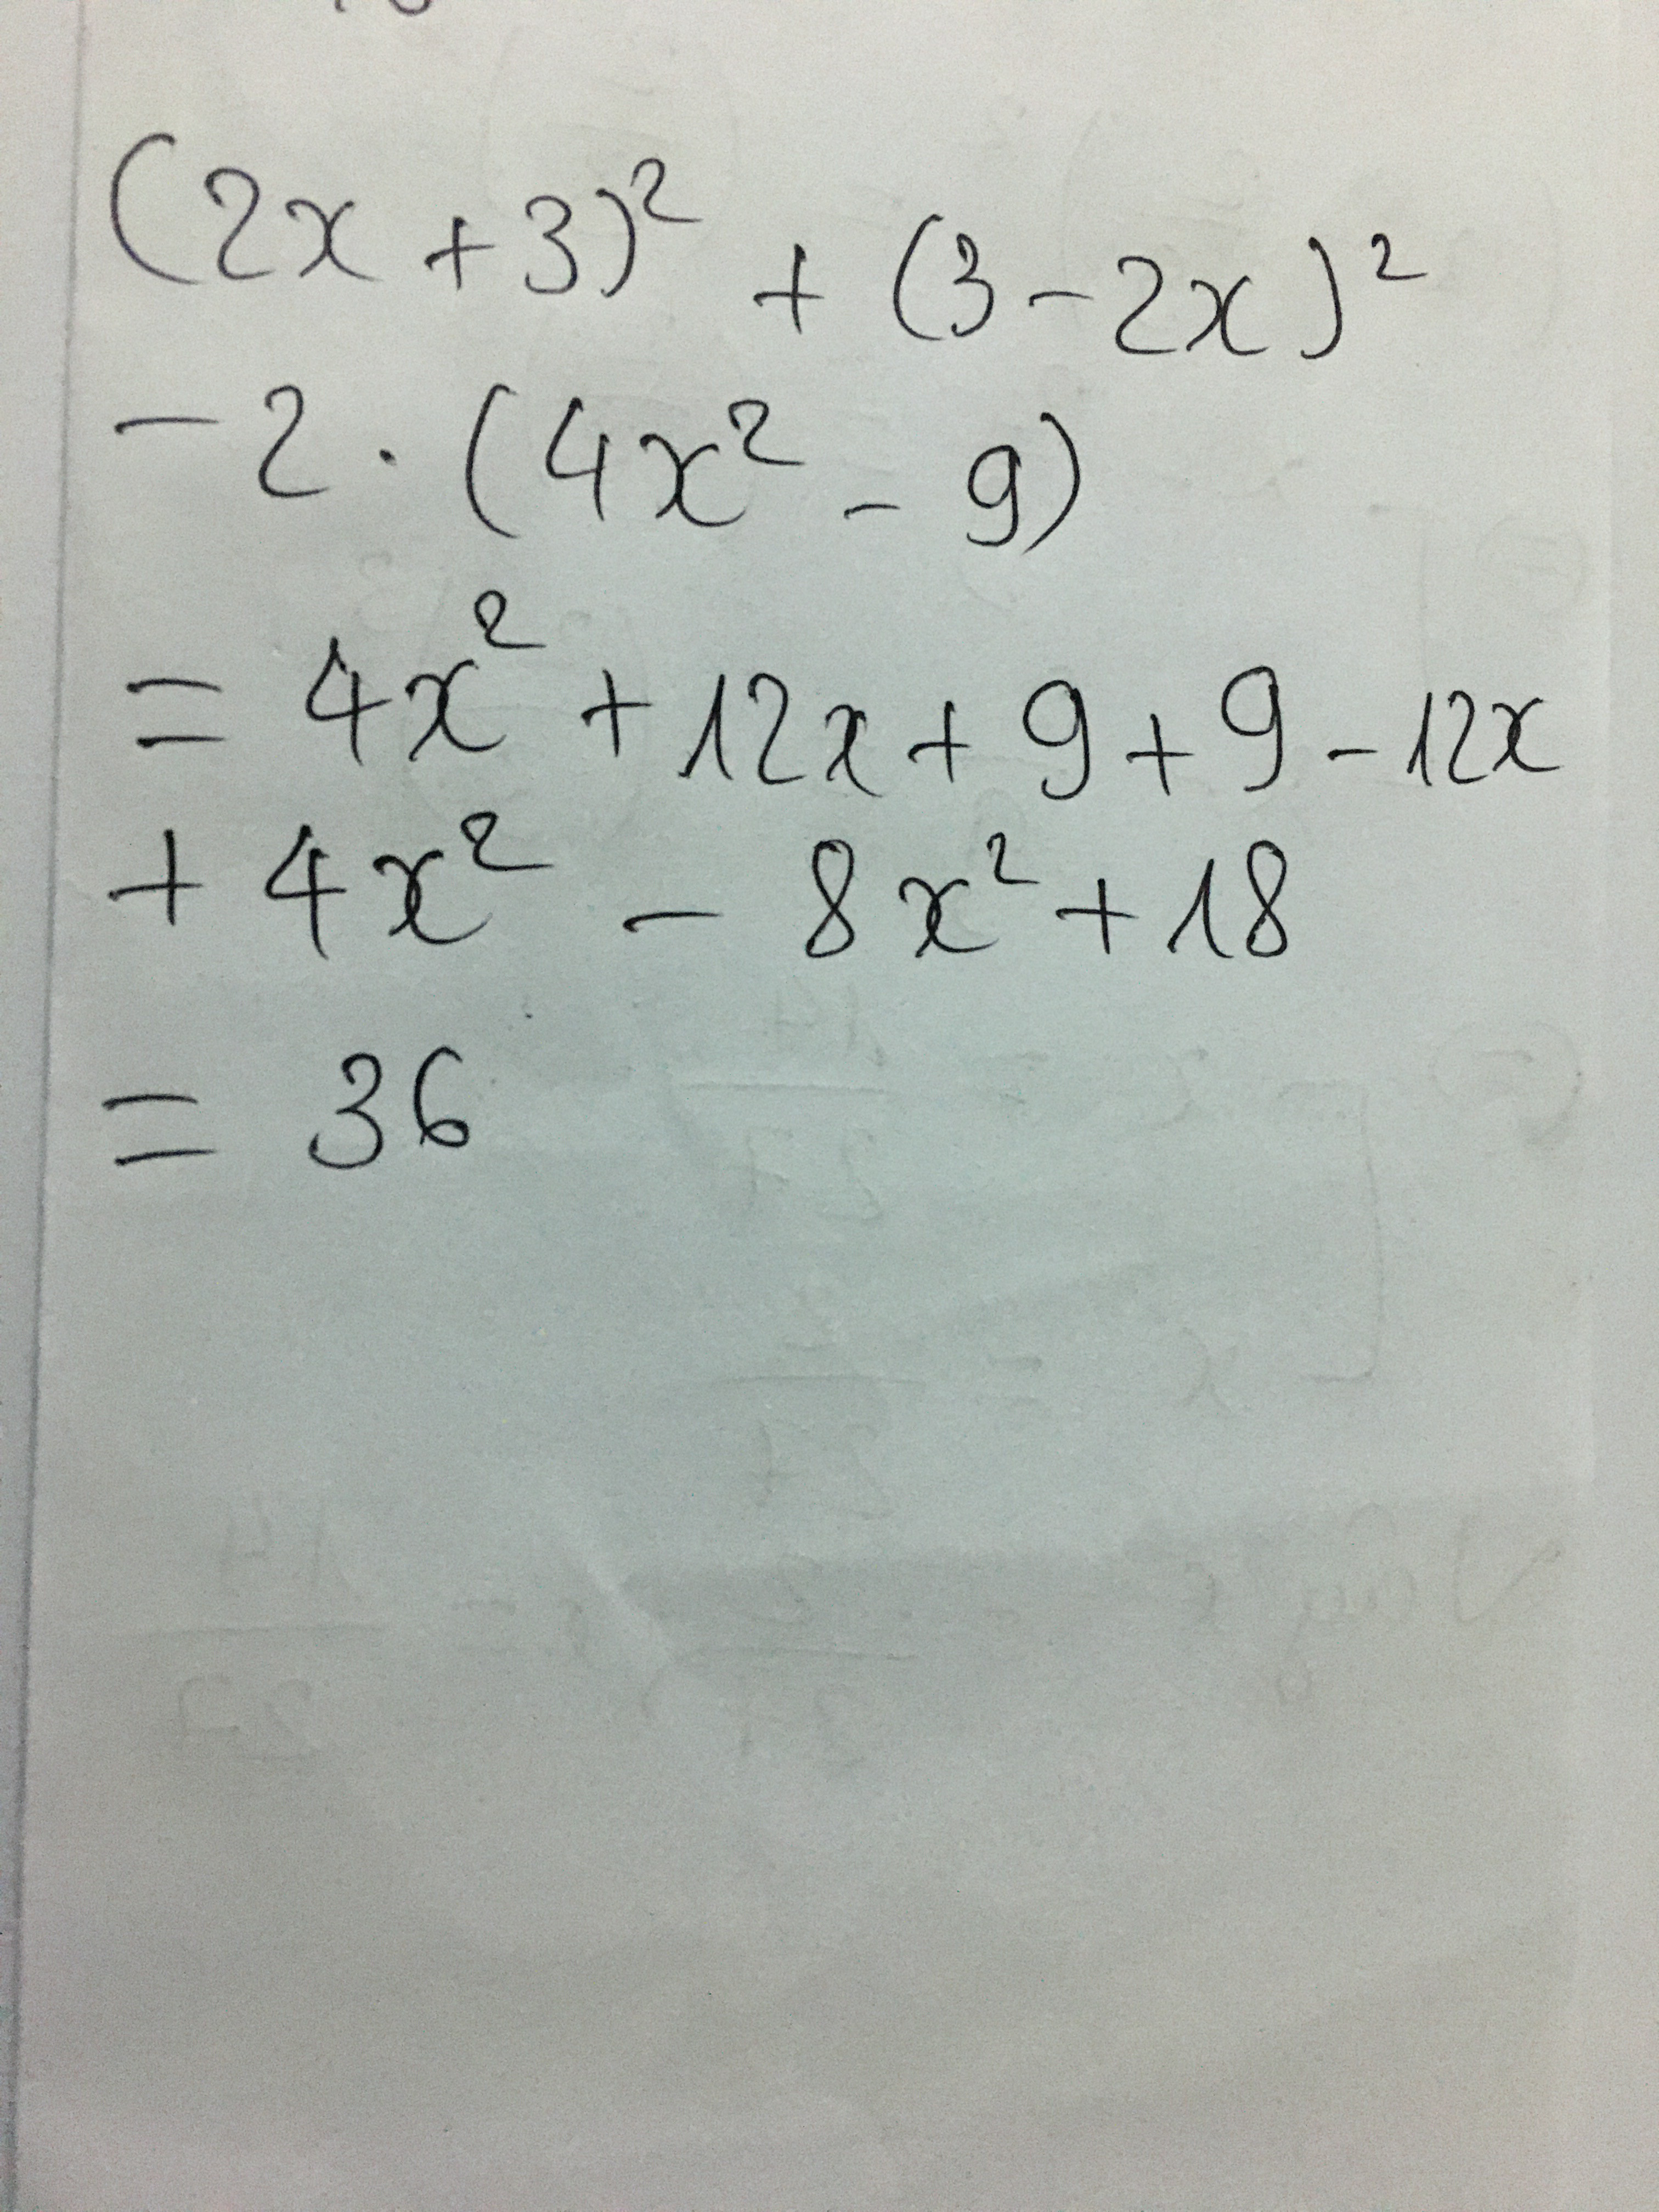 (2x + 3)² + (3 - 2x)²
- 2 . (4x² - 9)
= 4x² + 12x + 9 + 9 - 12x
+ 4x² - 8x² + 18
= 36